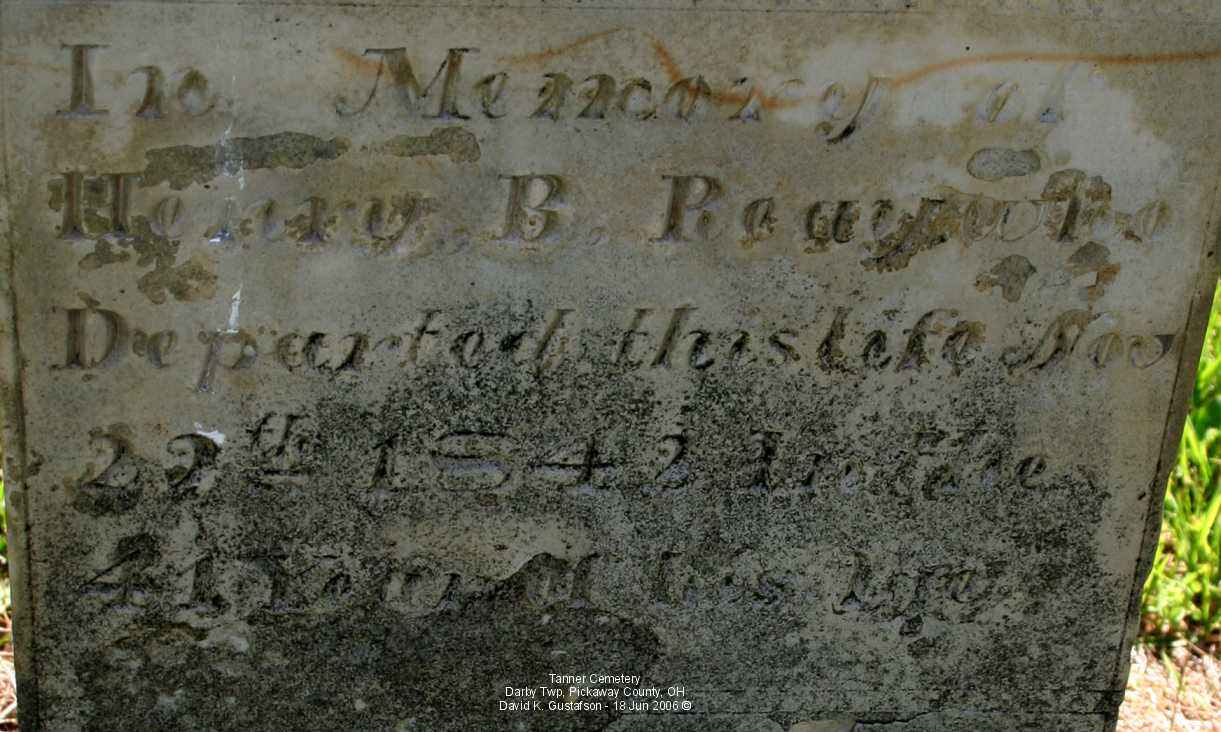 In Memory of
Henry. B. Reay who
Departed this life Nov
22th 1842 In the
41 Year of his age
Tanner Cemetery
Darby Twp, Pickaway County, OH
David K. Gustafson - 18 Jun 2006 ©